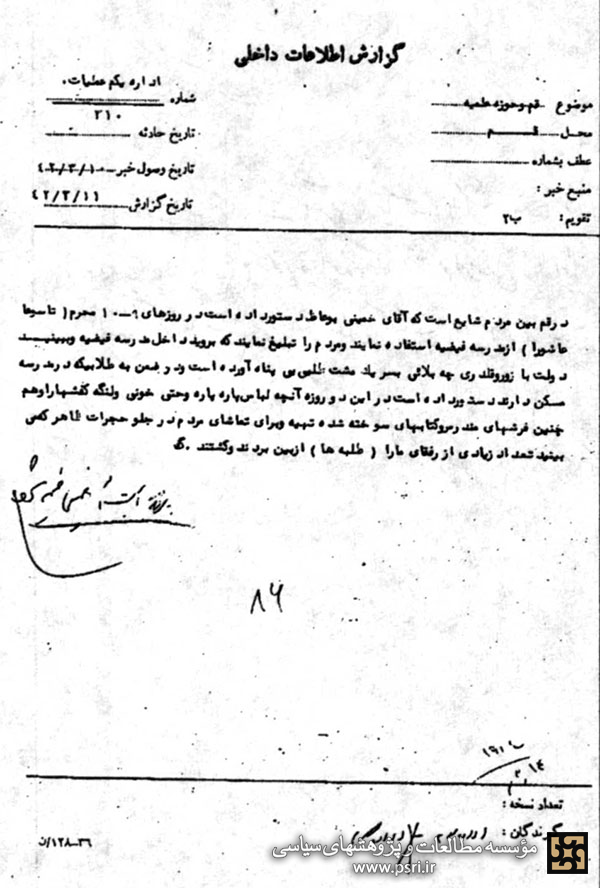 گزارش اطلاعات داخلی
موضوع قم وحوزه علمیه
محل قم
عطف بشماره
منبع خبر :
تقویم : ب۲
اداره یکم عملیات.
شماره
۲۱۰
تاریخ حادثه
تاریخ وصول خبر ۴۲/۳/۱۰
تاریخ گزارش ۴۲/۳/۱۱
در قم بین مردم شایع است که آقای خمینی بوعاظ دستور داده است در روزهای ۹-۱۰ محرم ( تاسوعا
عاشورا ) از مدرسه فیضیه استفاده نمایند ومردم را تبلیغ نمایند که بروید داخل مدرسه فیضیه وببینید
دولت با زوروقلدری چه بلائی بسر یك مشت طلبه بی پناه آورده است ودر ضمن به طلابیکه در مدرسه
مسکن دارند دستور داده است در این دوروزه آنچه لباس پاره پاره وحتی خونی ولنگه کفشها راوهم
چنین فرشهای مندرس وکتابهای سوخته شده تهیه وبرای تماشای مردم در جلو حجرات ظاهر کنید
ببینید تعداد زیادی از رفقای مارا ( طلبه ها ) ازبین بردند وکشتند .گ
۸۶
تعداد نسخه :
گیرندگان :
۱۲۸-۳۶/ن
مؤسسه مطالعات و پژوهشهای سیاسی
www.psri.ir